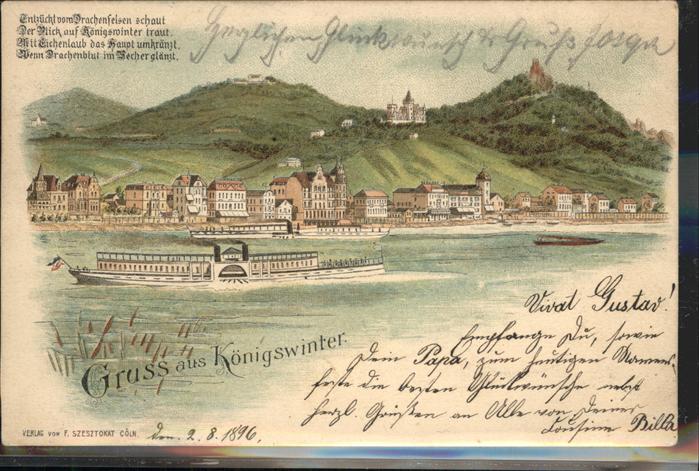 Entzückt vom Drachenfelsen schaut
Der Blick auf Königswinter traut.
Mit Eichenlaub das Haupt umkränzt,
Wenn Drachenblut im Becher glänzt.
Herzlichen Glückwunsch & Gruß
Vivat Gustav!
Empfange Du, sowie
Dein Papa, zum heutigen Namens-
feste die besten Glückwünsche nebst
herzl. Grüßen an Alle von Deiner
Cousine Billa
Gruss aus Königswinter.
VERLAG VON F. SZESZTOKAT CÖLN.
den 2. 8. 1896.